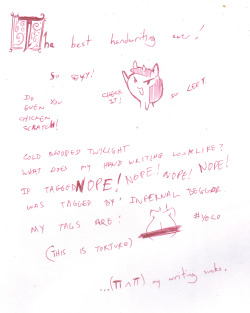 The best handwriting ever!
So sexy!
CHECK IT!
SO LEET
DO YOU EVEN CHICKEN SCRATCH!
COLD BLOODED TWILIGHT
WHAT DOES MY HANDWRITING LOOK LIKE?
IF TAGGED NOPE! NOPE! NOPE! NOPE!
WAS TAGGED BY: INFERNAL BEGGAR
MY TAGS ARE:
#YOLO
(THIS IS TORTURE)
...(π∩π) my writing sucks.